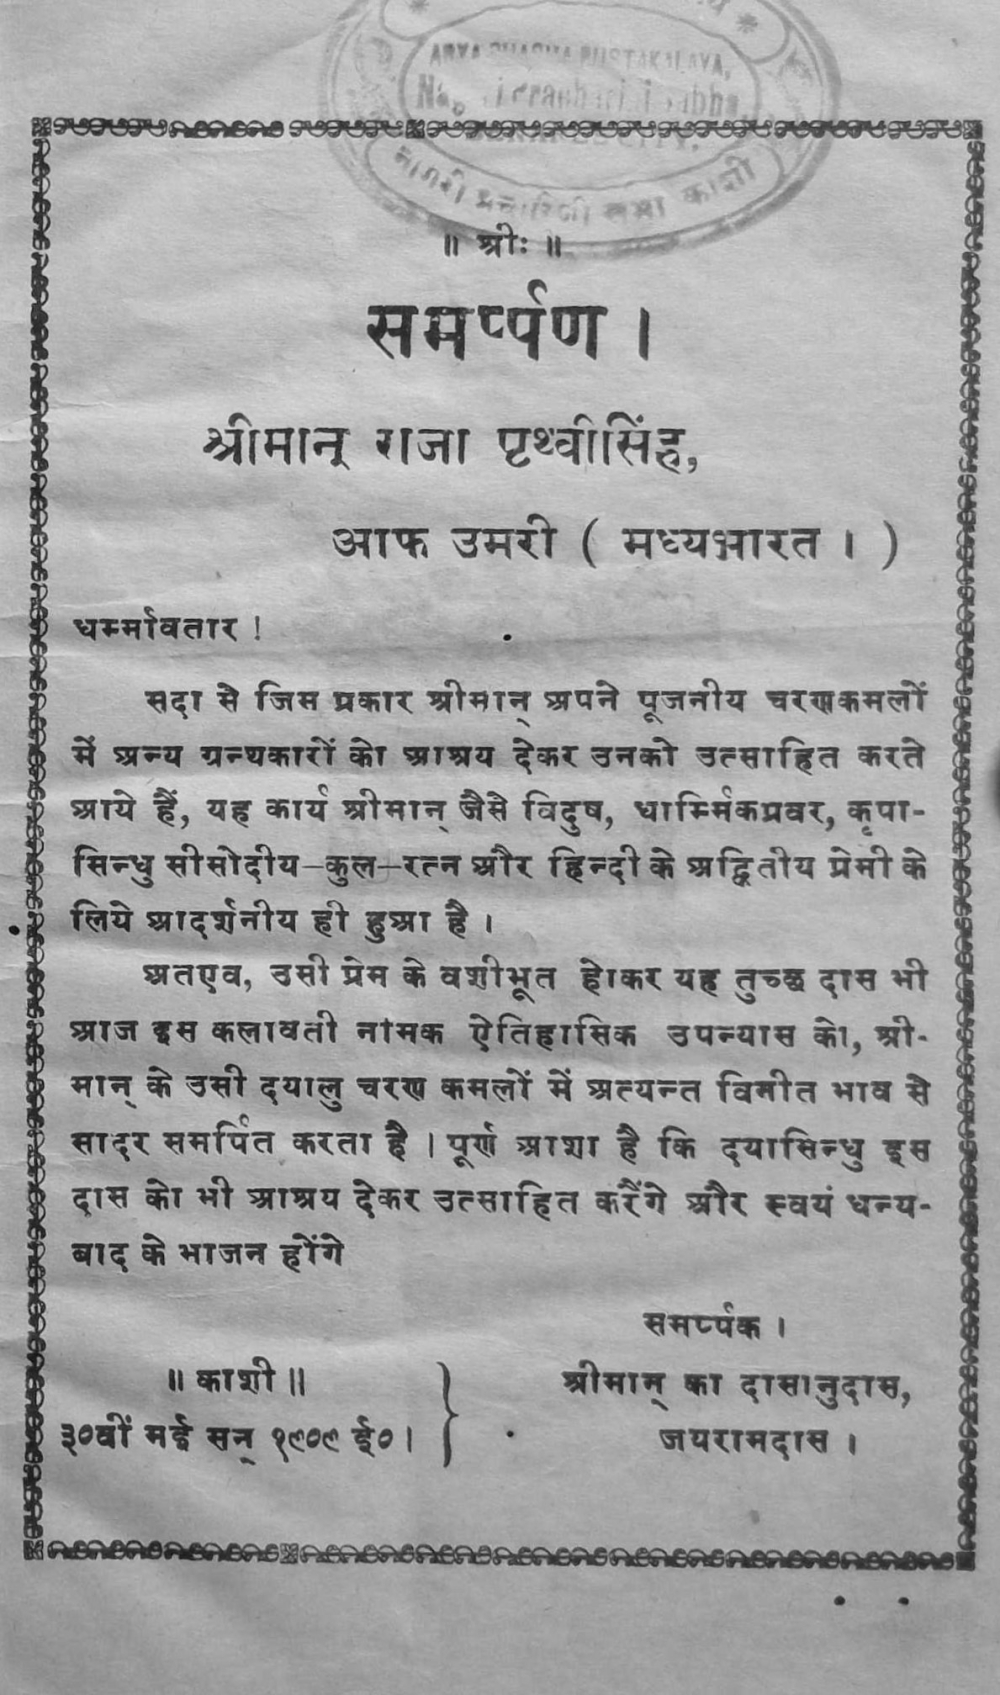 ARYA BHASHA PUSTAKALAYA,
नागरी प्रचारिणी सभा काशी
॥ श्रीः ॥
समर्प्पण ।
श्रीमान् राजा पृथ्वीसिंह,
आफ उमरी ( मध्यभारत । )
धर्म्मावतार !
सदा सै जिस प्रकार श्रीमान् अपने पूजनीय चरणकमलों
में अन्य ग्रन्थकारों को आश्रय देकर उनको उत्साहित करते
आये हैं, यह कार्य श्रीमान् जैसे विदुष, धार्म्मिकप्रवर, कृपा-
सिन्धु सीसोदीय-कुल-रत्न और हिन्दी के अद्वितीय प्रेमी के
लिये आदर्शनीय ही हुआ है ।
अतएव, उसी प्रेम के वशीभूत होकर यह तुच्छ दास भी
आज इस कलावती नामक ऐतिहासिक उपन्यास को, श्री-
मान् के उसी दयालु चरण कमलों में अत्यन्त विनीत भाव सै
सादर समर्पित करता है । पूर्ण आशा है कि दयासिन्धु इस
दास को भी आश्रय देकर उत्साहित करैंगे और स्वयं धन्य-
बाद के भाजन होंगे
समर्प्पक ।
॥ काशी ॥
३०वीं मई सन् १९०९ ई० ।
श्रीमान् का दासानुदास,
जयरामदास ।